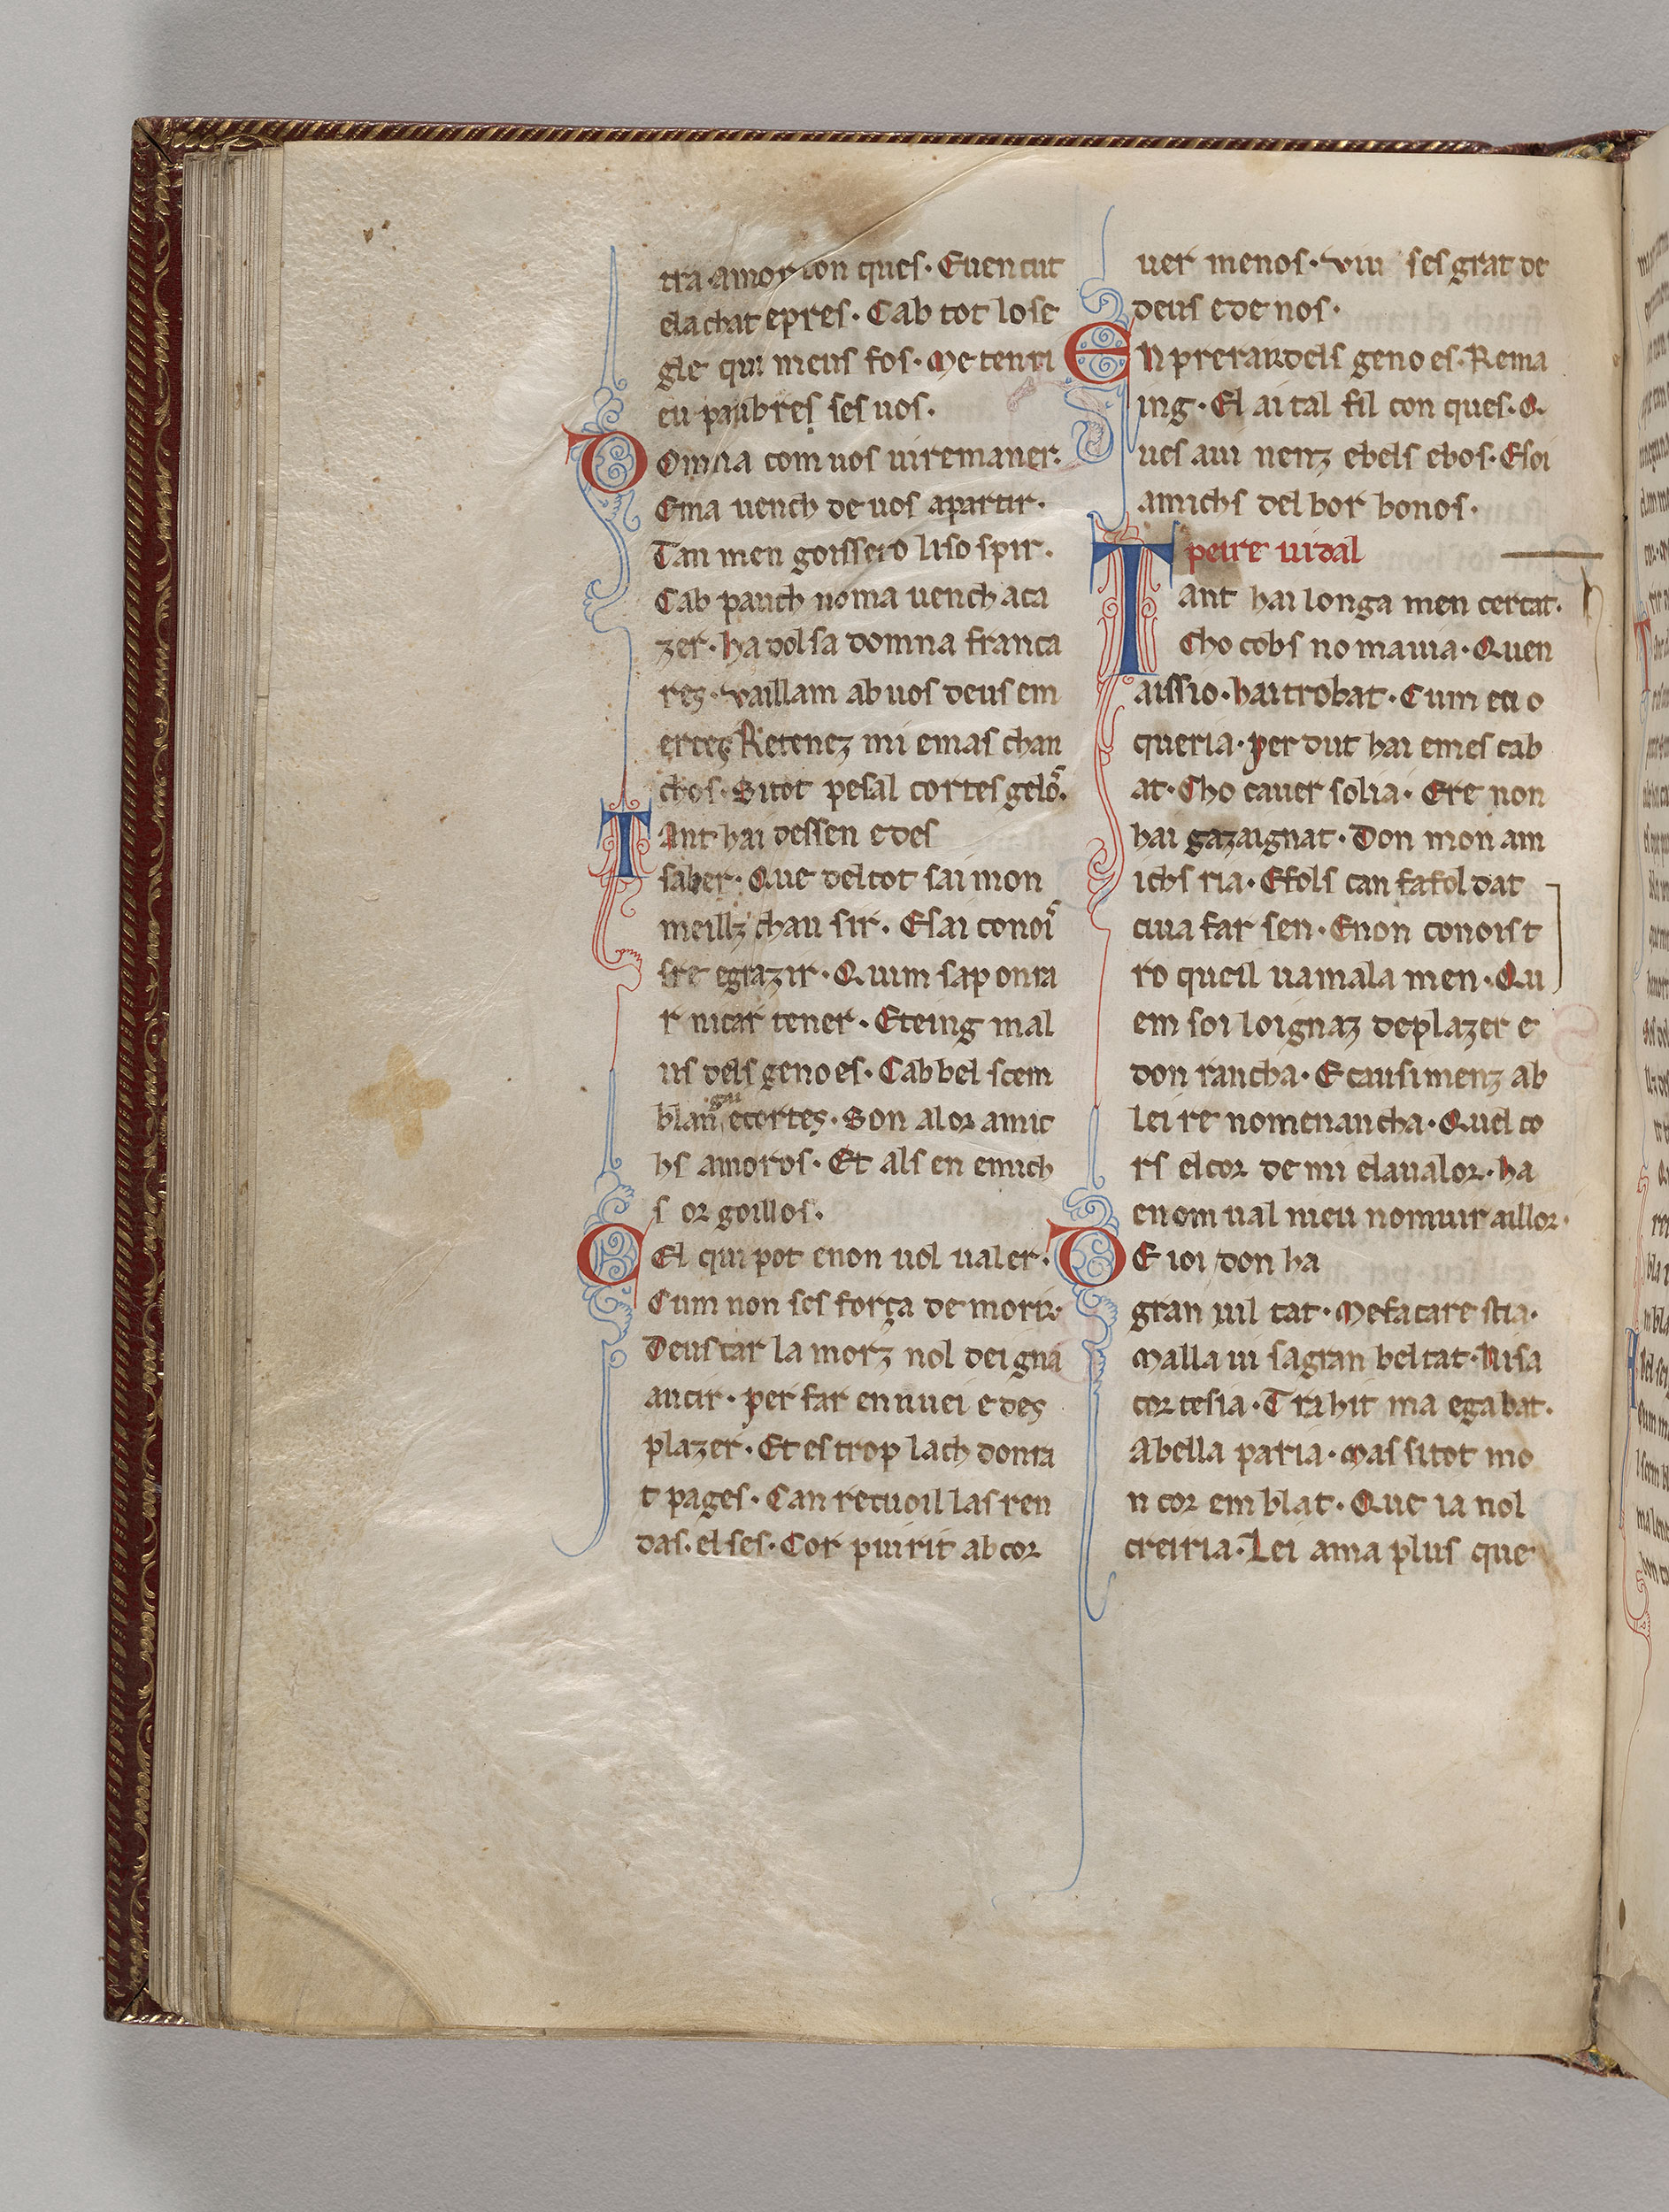 tra amor con ques. Euencut
elachat epres. Cab tot lo se
gle qui meus fos. Me tenri
eu paubres ses uos.
Domna com uos uiremaner.
Ema uench de uos apartir.
Tan men goissero li so spir.
Cab pauch noma uench aca
zer. ha dolsa domna franca
res. vaillam ab uos deus em
erces Retenez mi emas chan
chos. Sitot pesal cortes gelo͂.
Tant hai dessen e des
saber. Que deltot sai mon
meillz chau sir. Esai conoi
sre egrazir. Quim sap onra
r nicar tener. Eteing mal
us dels geno es. Cab bel scem
blan gai ecortes. Son alor amic
hs amoros. Et als en emich
s or goillos.
Cel qui pot enon uol ualer.
Cum non ses força de morir.
Deus car la morz nol deigna
aucir. per far ennuei e des
plazer. Et es trop lach donra
t pages. Can recuoil las ren
das. el ses. Cor puirit ab cor
uer menos. viu ses grat de
deus e de nos.
En prerardels geno es. Rema
ing. El ai tal fil con ques. Q.
ues aui nenz ebels ebos. Esoi
amichs del bor bonos.
peire uidal
Tant hai longa men cercat.
Cho cobs no mauia. Quen
aissio. hai trobat. Cum eu o
queria. perdut hai emes cab
at. Cho cauer solia. Ere non
hai gazaignat. Don mon am
ichs ria. Efols can fafol dat
cuua far sen. Enon conoist
ro queil uamala men. Qu
em soi loignaz deplazer e
don rancha. E causimenz ab
lei re nomenancha. Quel co
rs elcor de mi elaualor. ha
enom ual nieu nomuir aillor.
De ioi don ha
gran uil tat. Mefa care stia.
Malla ui sagran beltat. Nisa
cor tesia. Trahit ma egabat.
Abella paria. Mas sitot mo
n cor em blat. Que ia nol
creiria. Lei ama plus que